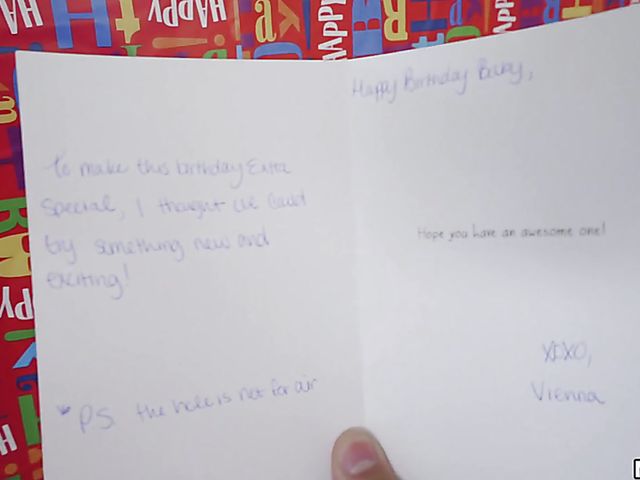 To make this birthday Extra
Special, I thought we could
try something new and
exciting!
*PS. the hole is not for air
Happy Birthday Baby,
Hope you have an awesome one!
XOXO,
Vienna
HAPPY
HAPPY
HAPPY